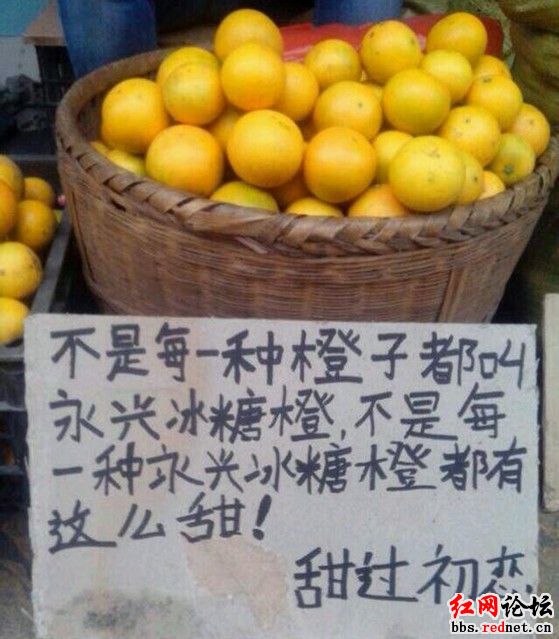 不是每一种橙子都叫
永兴冰糖橙,不是每
一种永兴冰糖橙都有
这么甜!
甜过初恋
红网论坛
bbs.rednet.cn